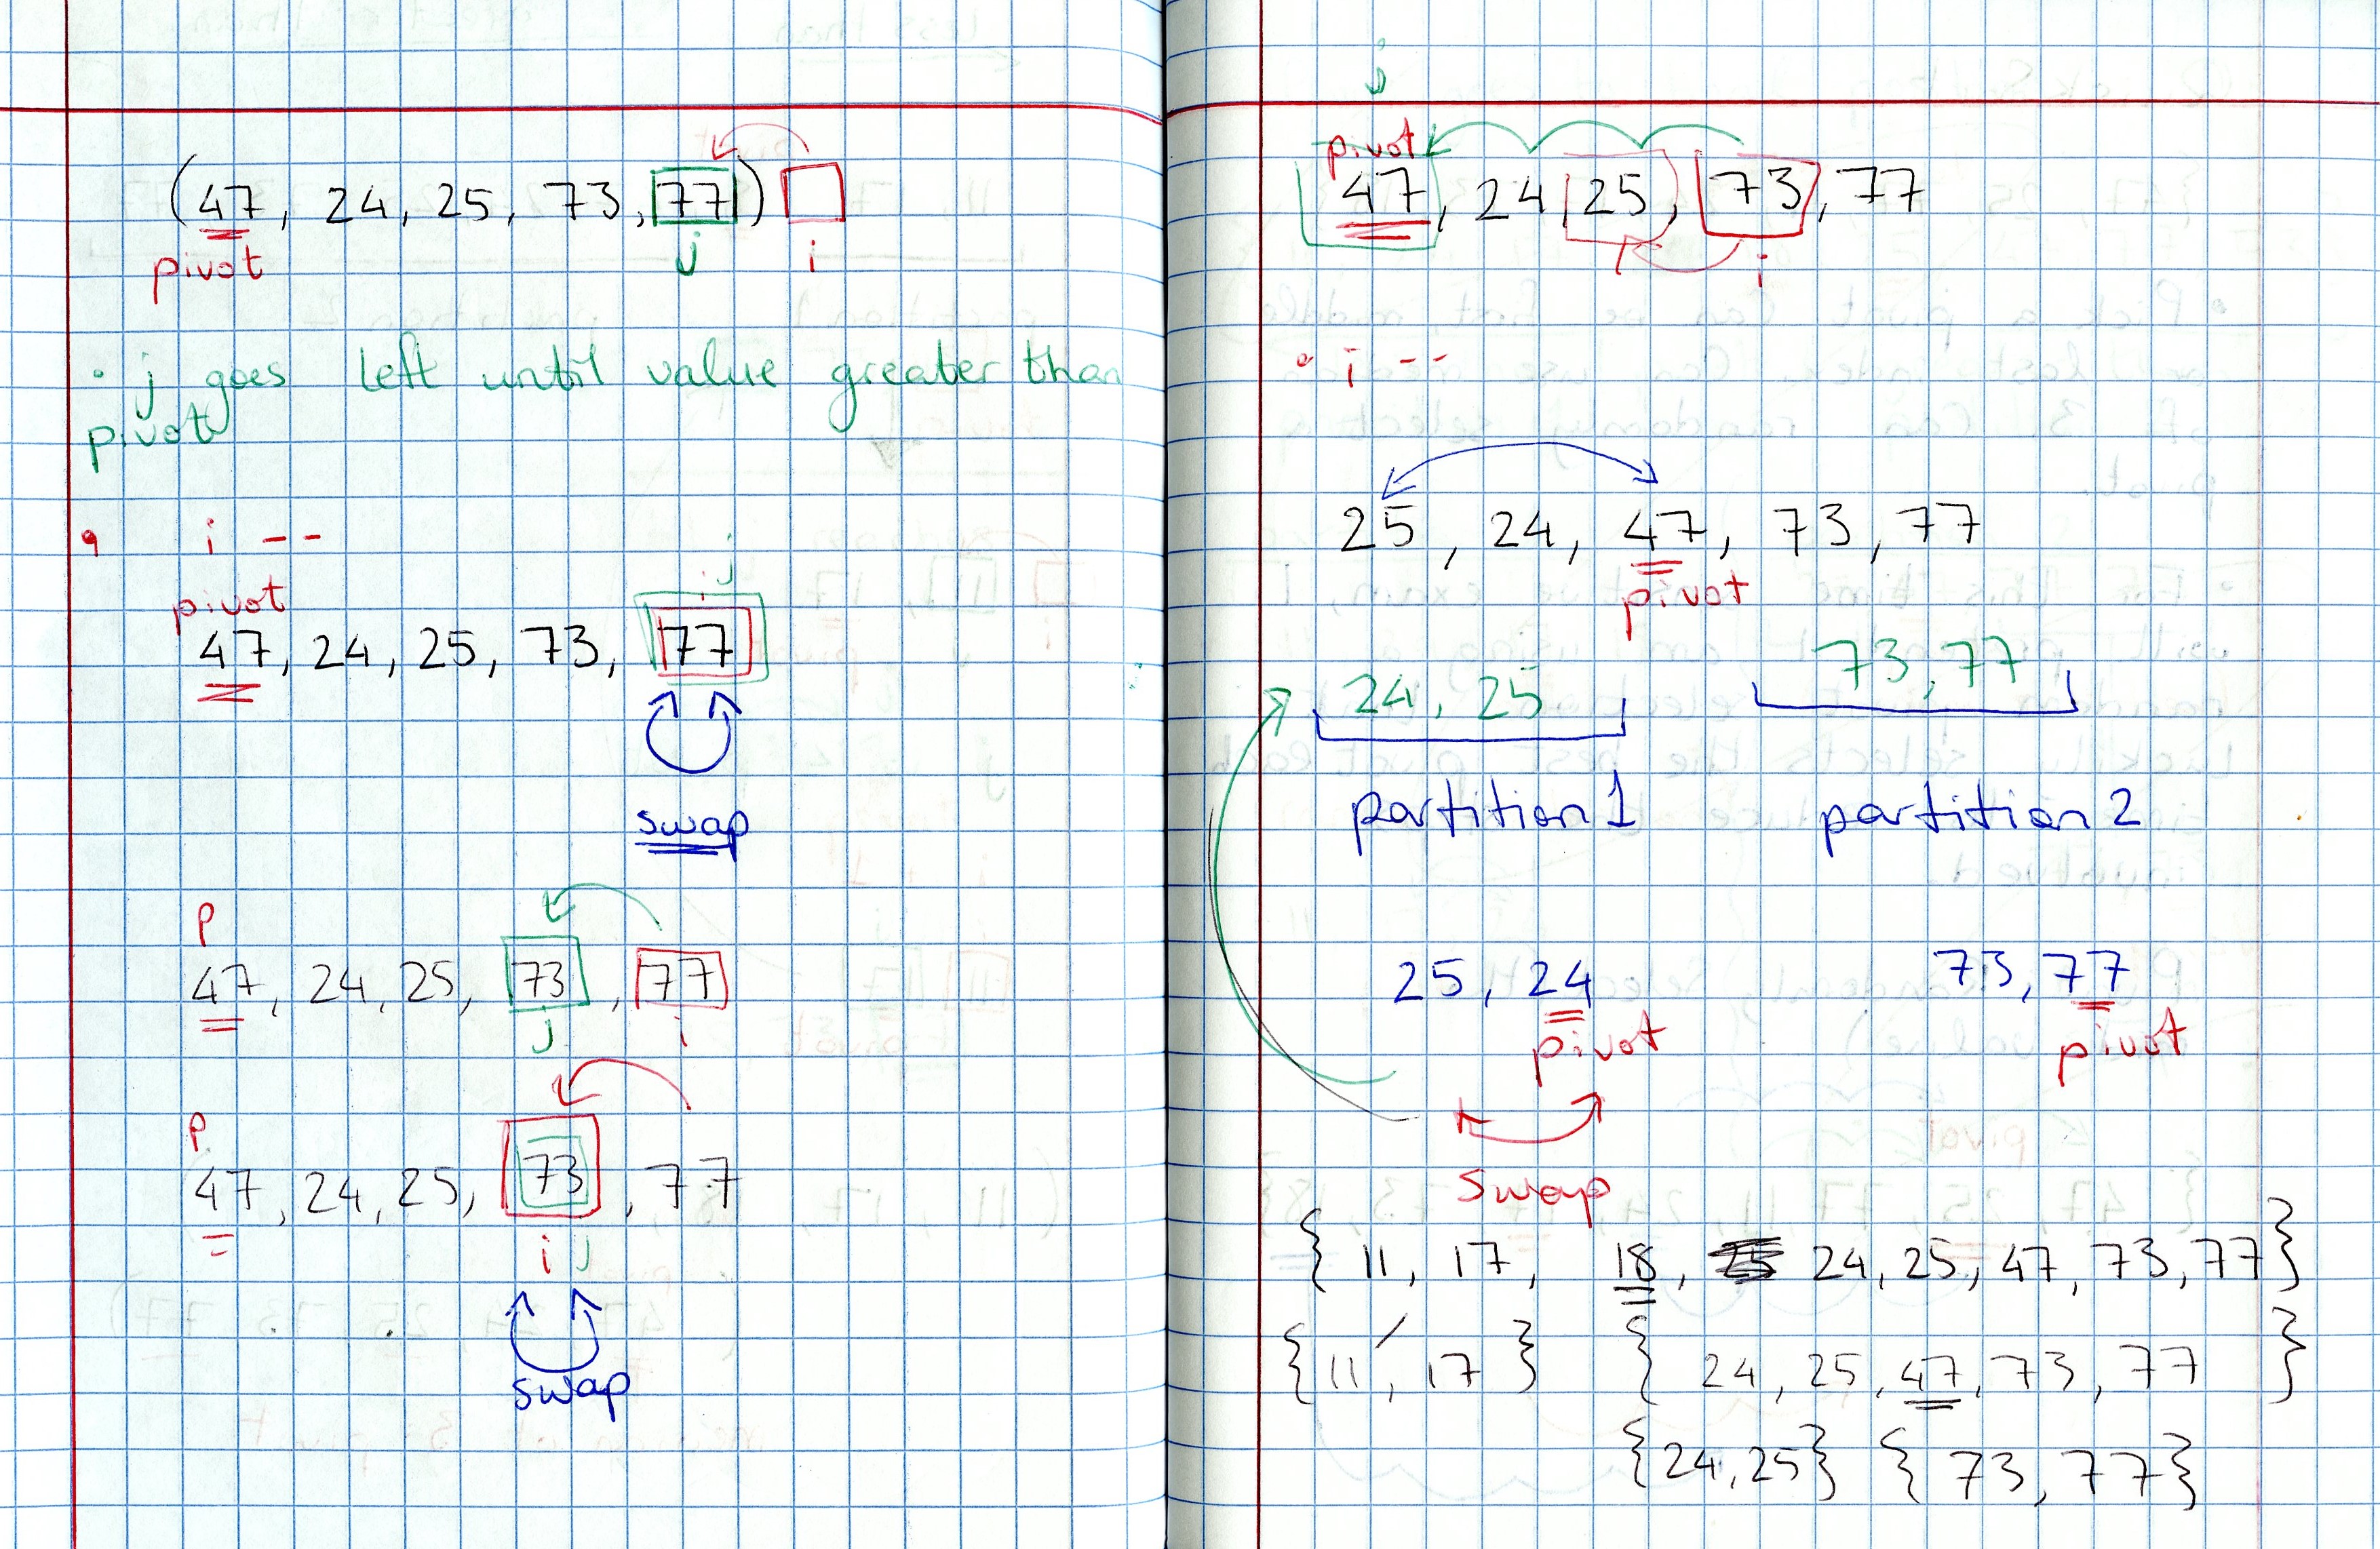 (47, 24, 25, 73, 77)
pivot j i
• j goes left until value greater than
pivot
• i --
j
pivot i
47, 24, 25, 73, 77
swap
P
47, 24, 25, 73, 77
j i
P
47, 24, 25, 73, 77
i j
swap
j
pivot
47, 24, 25, 73, 77
i
• i --
25, 24, 47, 73, 77
pivot
24, 25 73, 77
partition 1 partition 2
25, 24 73, 77
pivot pivot
swap
{ 11, 17, 18, 24, 25, 47, 73, 77}
{11, 17} { 24, 25, 47, 73, 77 }
{24, 25} { 73, 77}